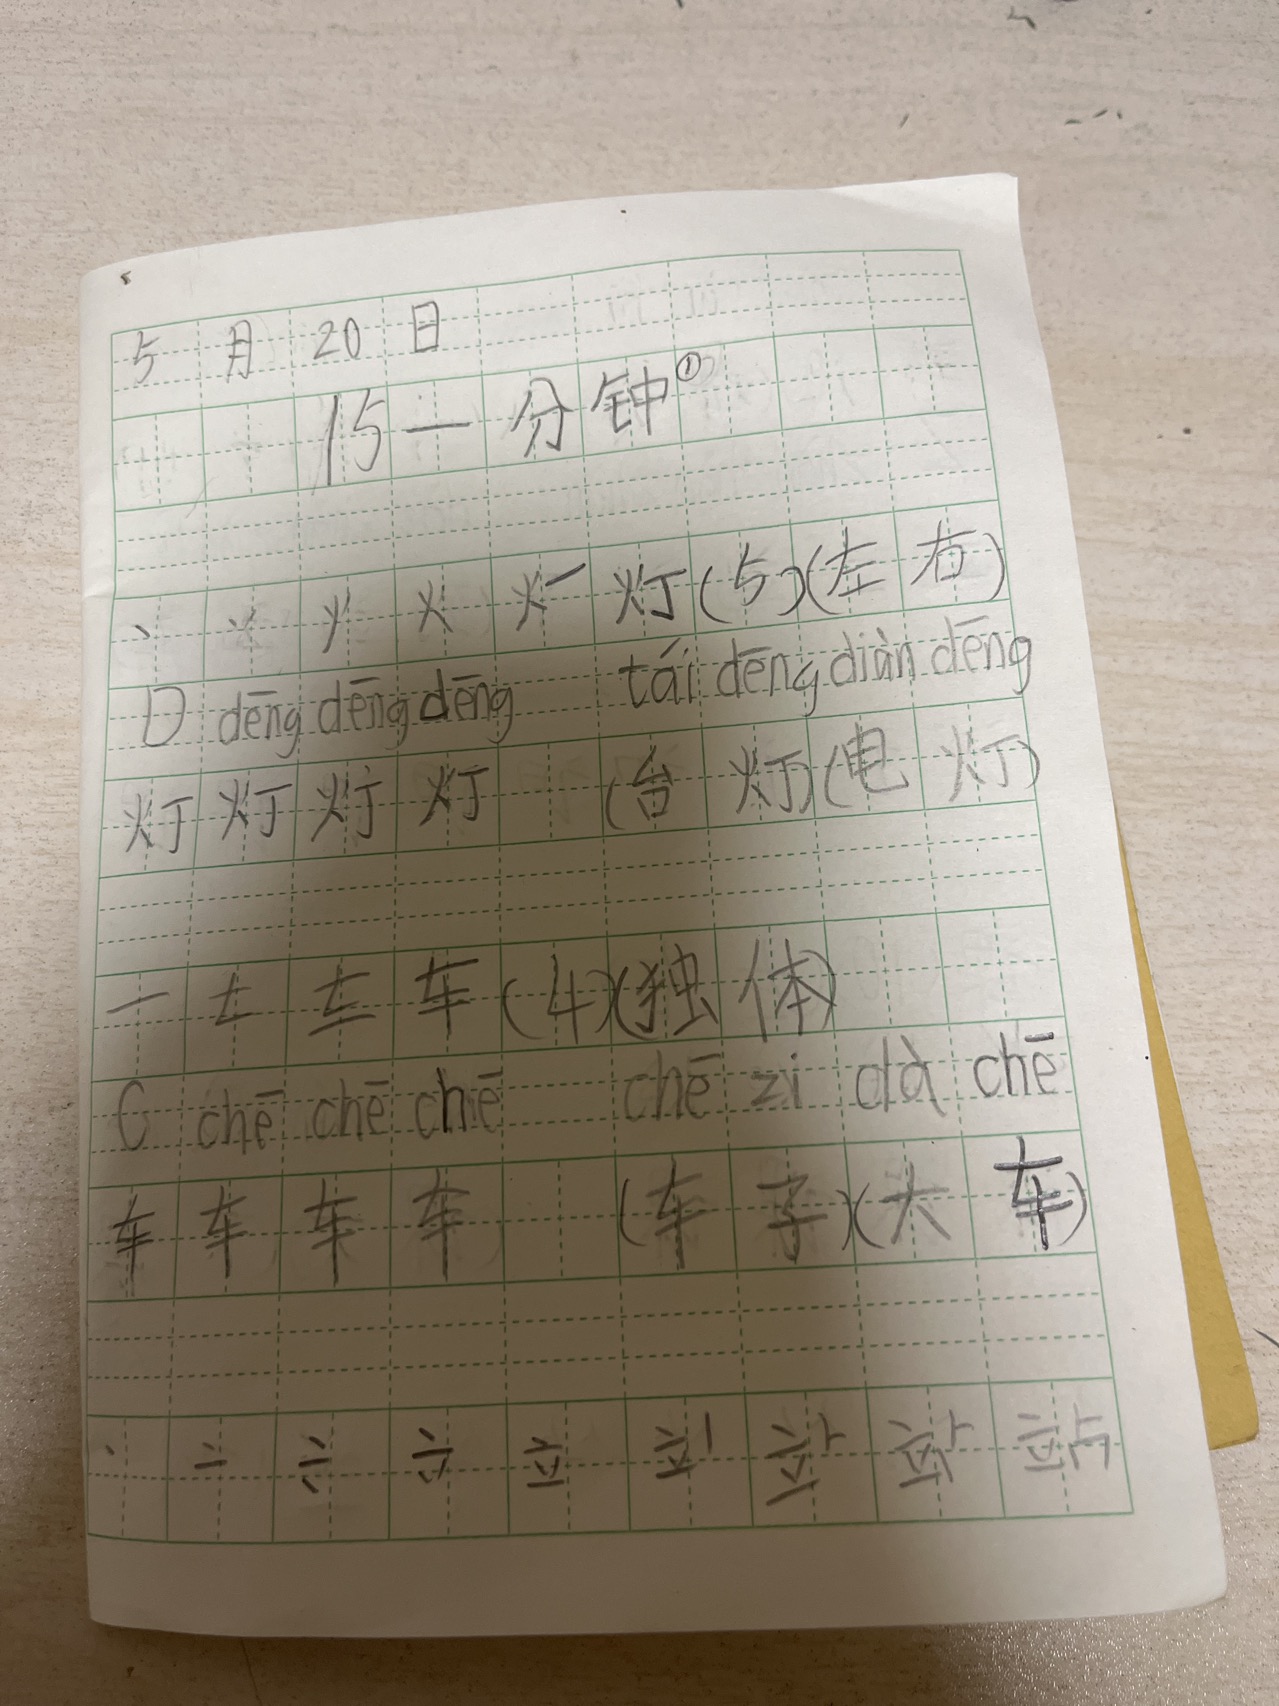 5月20日
15一分钟①
丶 丷 ⺌ 火 灯 (5)(左右)
D dēng dēng dēng tái dēng diàn dēng
灯 灯 灯 灯 (台灯)(电灯)
一 车 (4)(独体)
C chē chē chē chē zi dà chē
车 车 车 车 (车子)(大车)
丶 亠 立 站